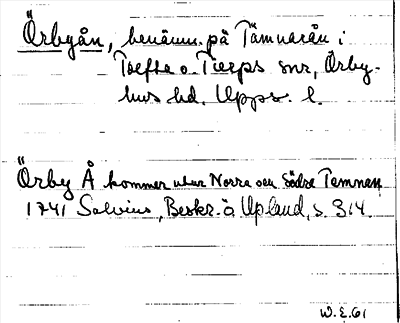 Örbyån, benämn. på Tämnarån i
Tolfta o. Tierps snr, Örby-
hus hd. Upps. l.
Örby Å kommer utur Norra och Södre Temnen
1741 Salvius, Beskr. ö. Upland, s. 314.
W.E.61